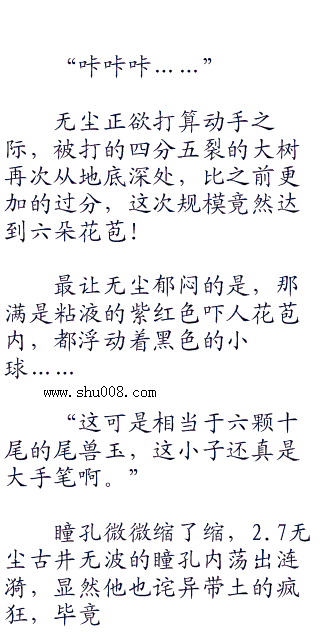 “咔咔咔……”
无尘正欲打算动手之
际，被打的四分五裂的大树
再次从地底深处，比之前更
加的过分，这次规模竟然达
到六朵花芭！
最让无尘郁闷的是，那
满是粘液的紫红色吓人花芭
内，都浮动着黑色的小
球……
www.shu008.com
“这可是相当于六颗十
尾的尾兽玉，这小子还真是
大手笔啊。”
瞳孔微微缩了缩，2.7无
尘古井无波的瞳孔内荡出涟
漪，显然他也诧异带土的疯
狂，毕竟